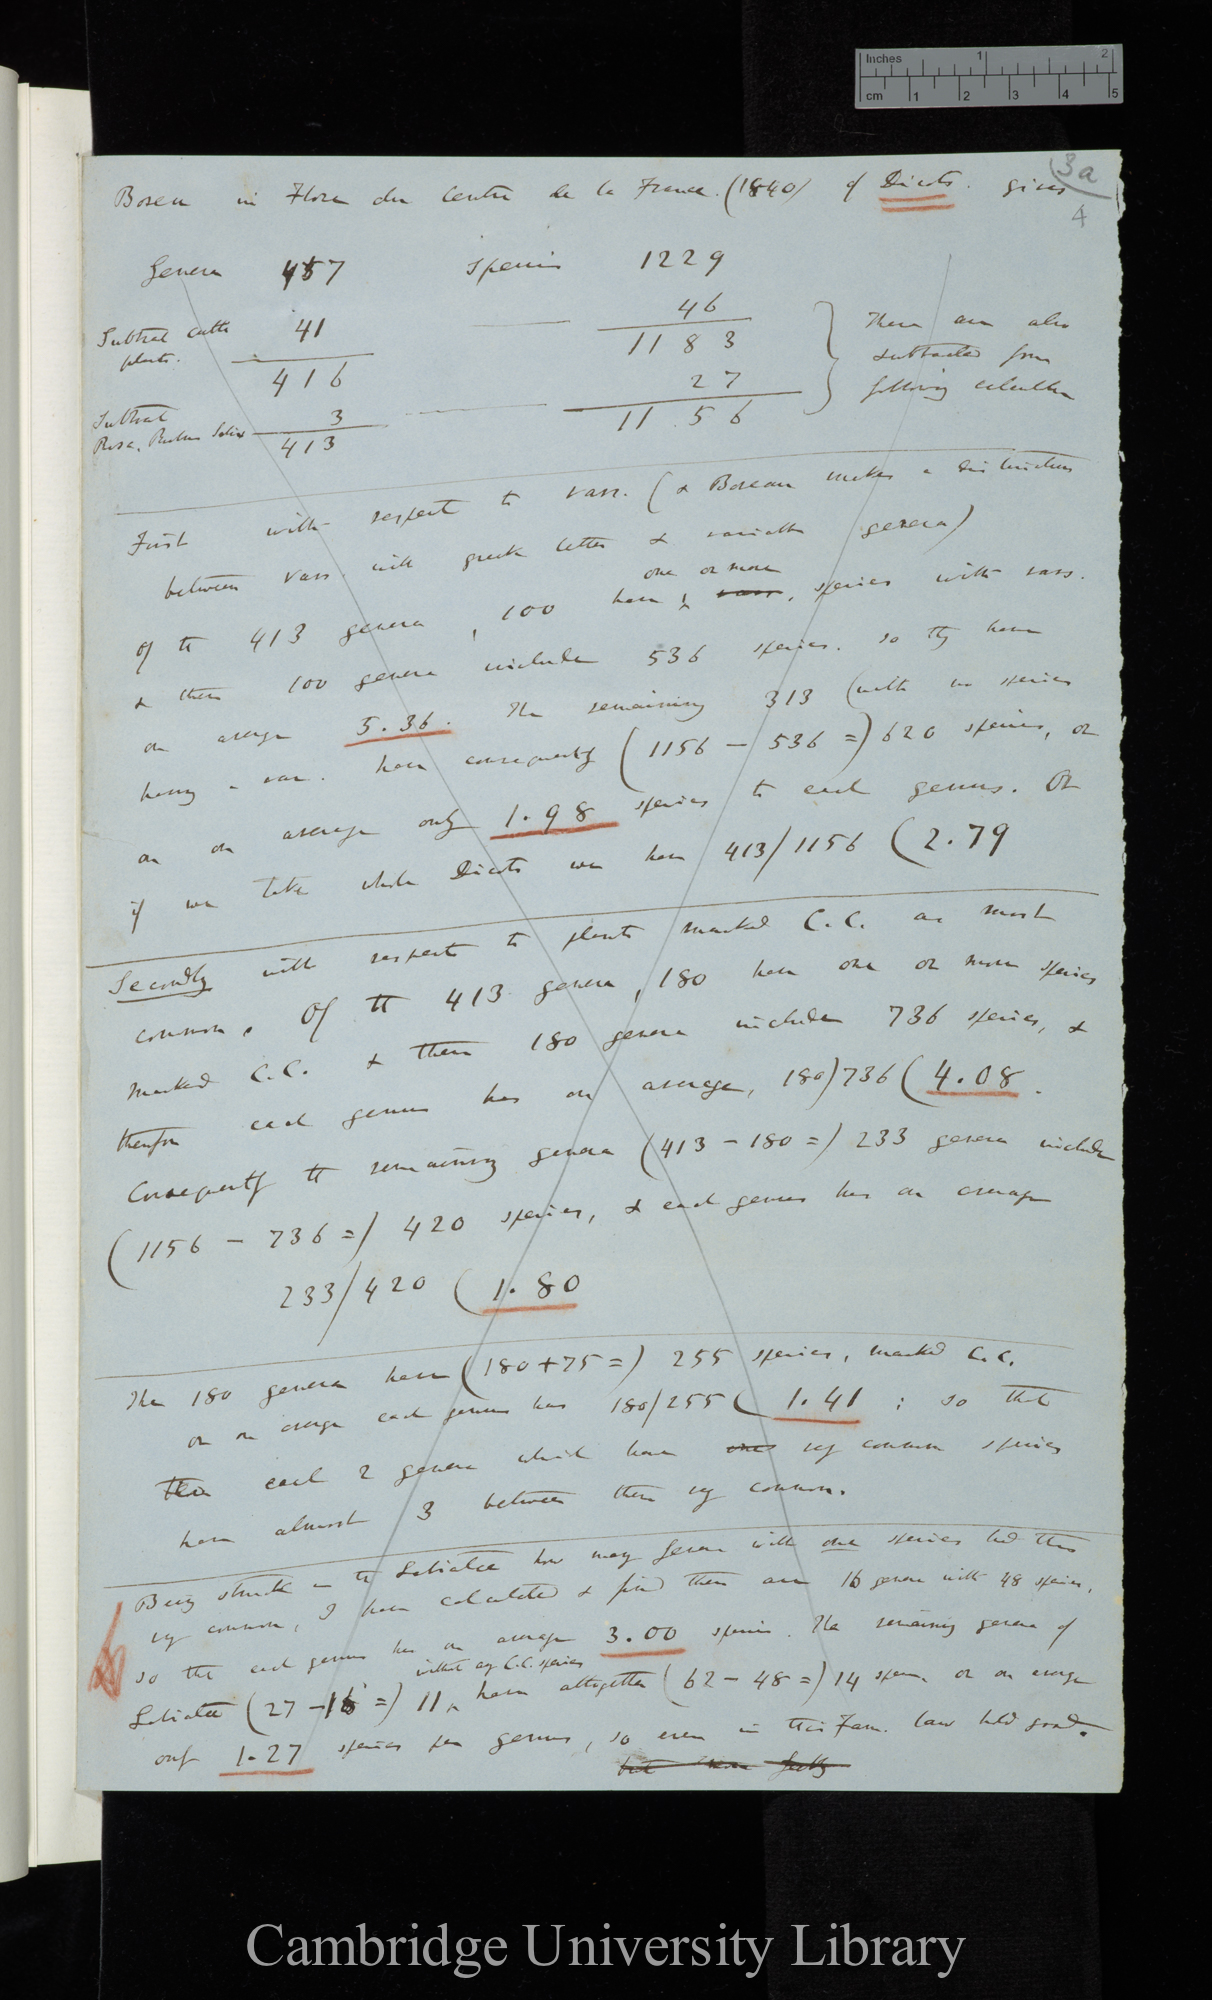 Inches 1 2
cm 1 2 3 4 5
3a
4
Boreau in Flora du Centre de la France. (1840) of Dicots. gives
Genera 457 Species 1229
Subtract cult. 41 — 46
plants.
416 1183
Subtract 3 — 27
Rosa, Rubus Salix
413 1156
These are also
subtracted from
following calculation
First with respect to vars. (& Boreau makes a distinction
between vars. with greek letter & variable genera)
one or more
Of the 413 genera, 100 have vars, species with vars.
& these 100 genera include 536 species. so they have
on average 5.36. The remaining 313 (with no species
having a var. have consequently (1156 – 536 =) 620 species, or
on an average only 1.98 species to each genus. Or
if we take whole Dicots we have 413/1156 (2.79
Secondly with respect to plants marked C.C. as most
common. Of the 413 genera, 180 have one or more species
marked C.C. & these 180 genera include 736 species, &
therefore each genus has on average, 180)736(4.08.
Consequently the remaining genera (413 – 180 =) 233 genera include
(1156 – 736 =) 420 species, & each genus has on average
233/420 (1.80
The 180 genera have (180+75=) 255 species, marked C.C.
or on average each genus has 180/255 (1.41 ; so that
each 2 genera which have ones very common species
have almost 3 between them very common.
Being struck in the Labiatæ how many genera with one species had this
very common, I have calculated & find there are 16 genera with 48 species,
so that each genus has on average 3.00 species. The remaining genera of
without any C.C. species
Labiatæ (27 – 16 =) 11 have altogether (62 – 48 =) 14 species or on average
only 1.27 species per genus, so even in this Fam. law holds good.
but
Cambridge University Library